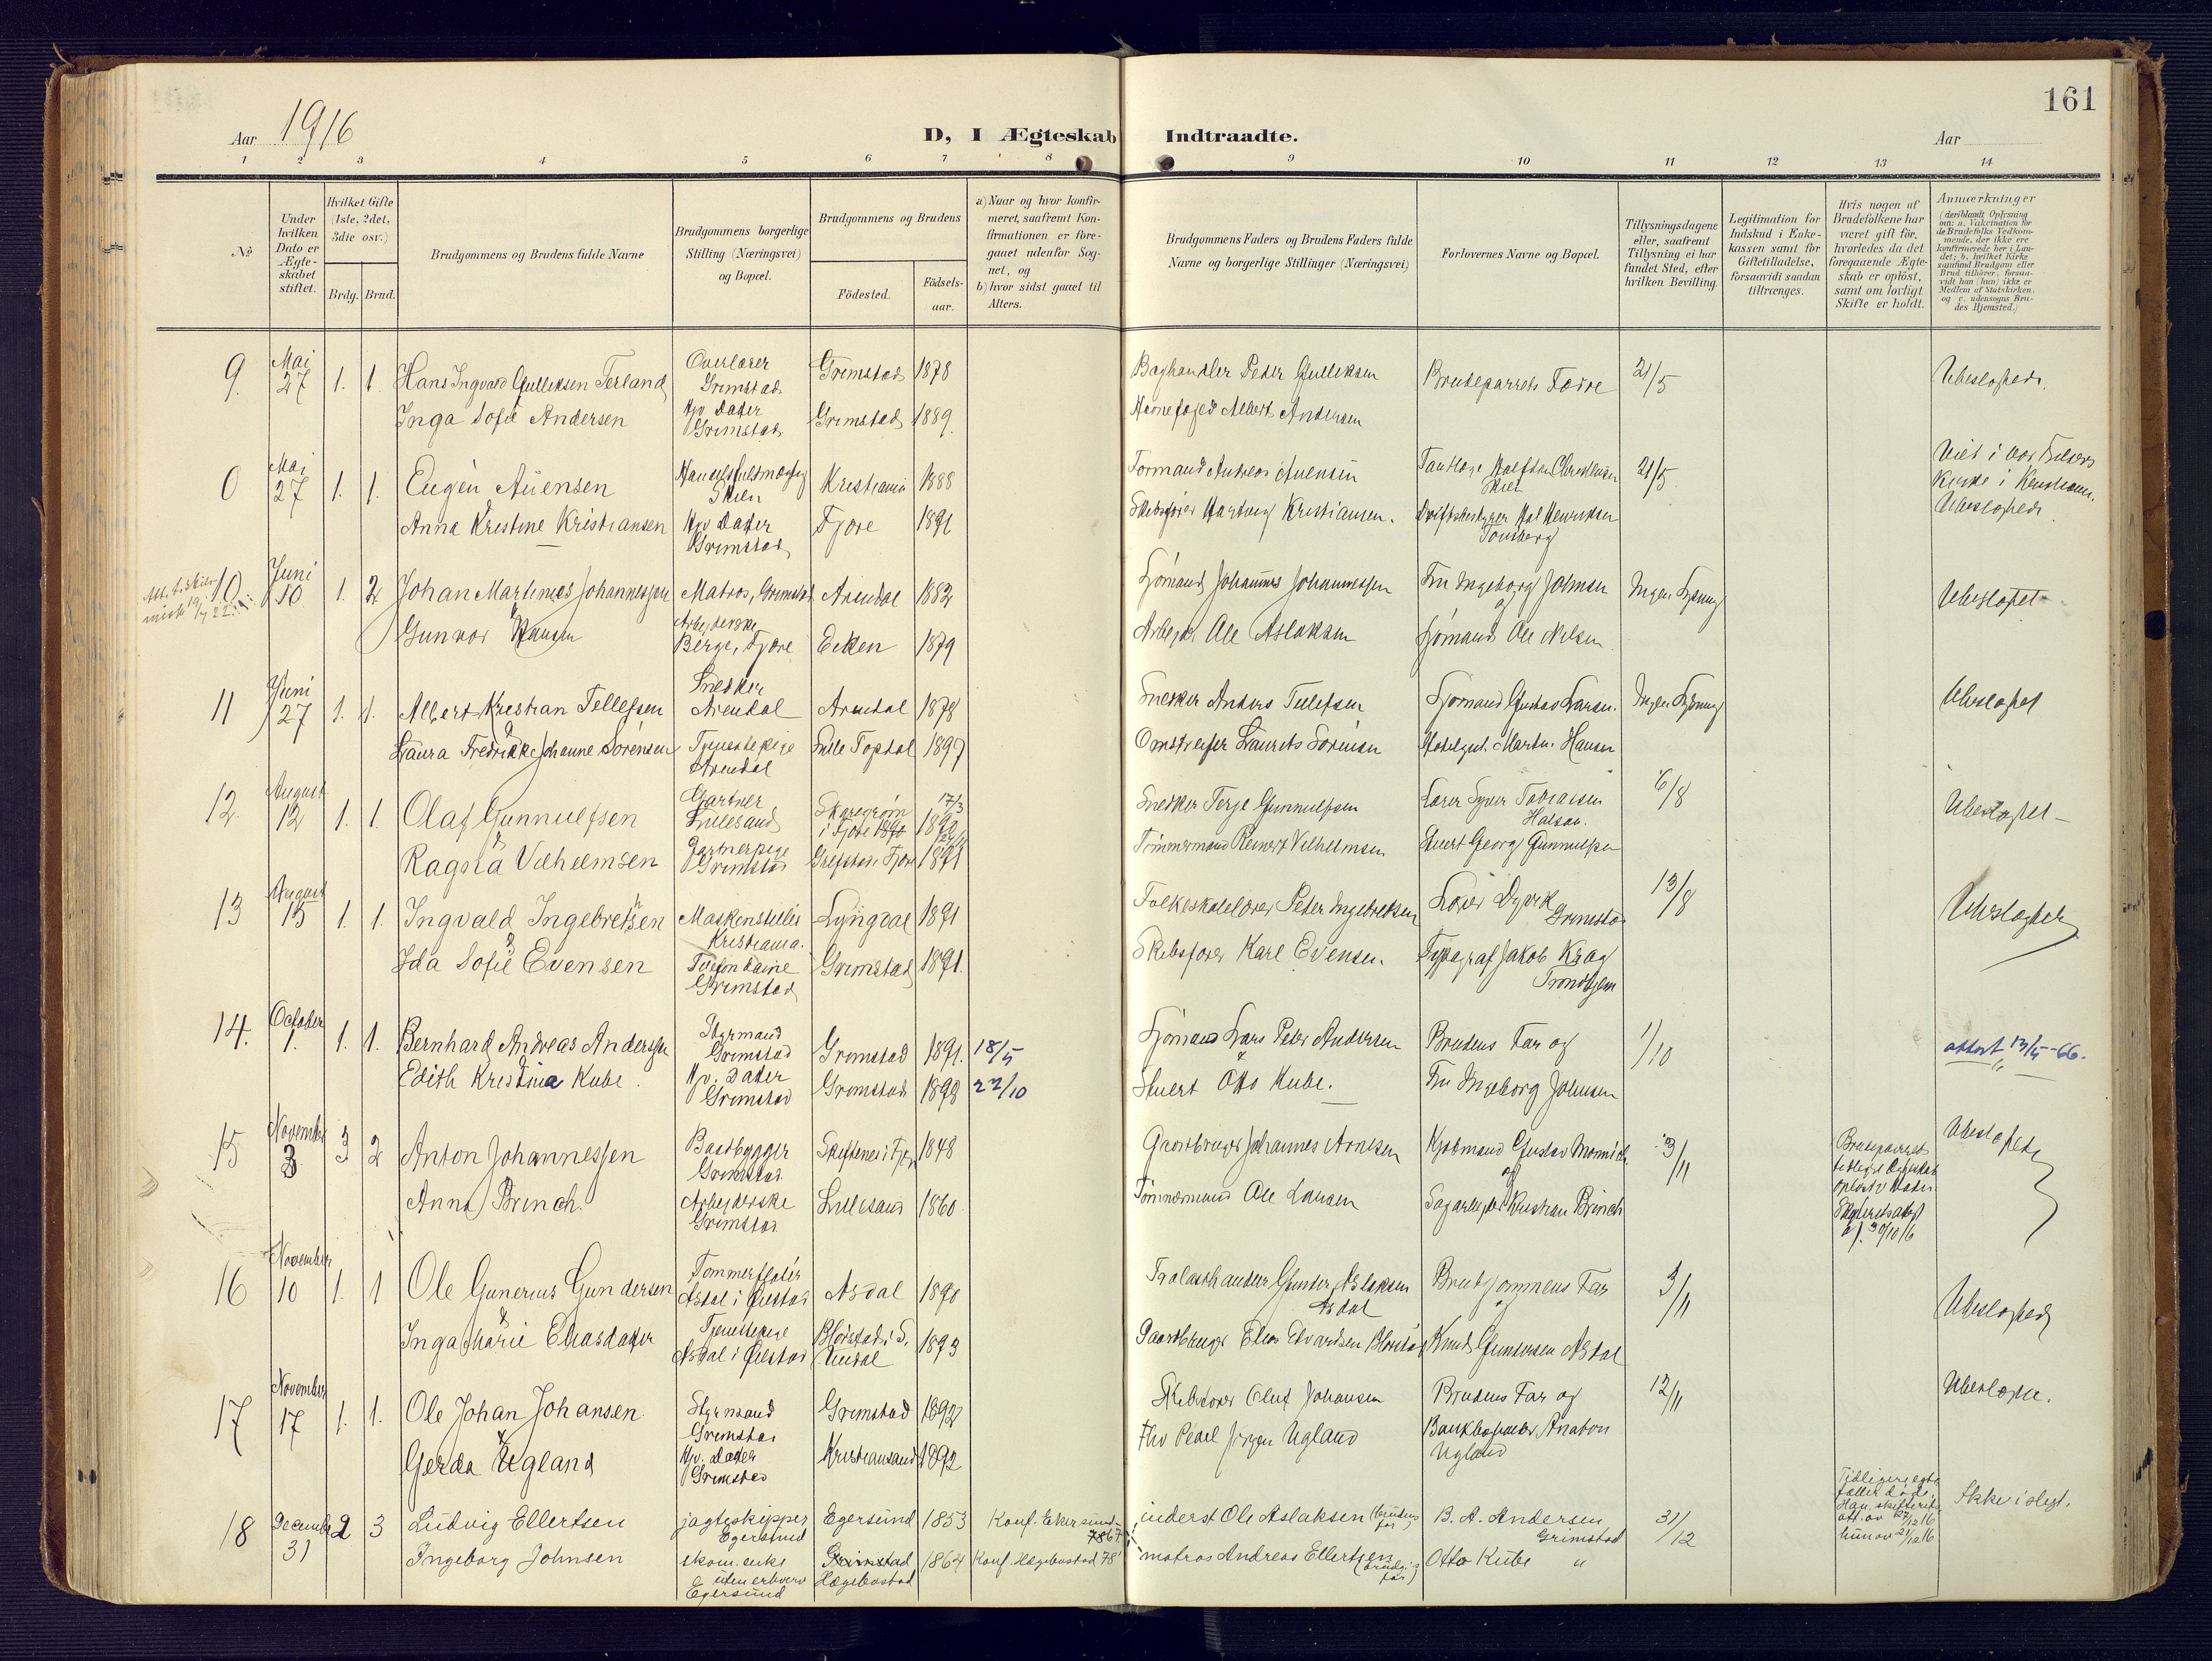 161
Aar 1916
D, I Ægteskab Indtraadte.
Aar
1 2 3 4 5 6 7 8 9 10 11 12 13 14
No.
Under hvilken Dato er Ægteskabet stiftet.
Hvilket Gifte (1ste, 2det, 3die osv.)
Brdg. Brud.
Brudgommens og Brudens fulde Navne
Brudgommens borgerlige Stilling (Næringsvei) og Bopæl.
Brudgommens og Brudens
Födested.
Födsels-aar.
a) Naar og hvor konfirmeret, saafremt Konfirmationen er foregaaet udenfor Sognet, og
b) hvor sidst gaaet til Alters.
Brudgommens Faders og Brudens Faders fulde Navne og borgerlige Stillinger (Næringsvei)
Forlovernes Navne og Bopæl.
Tillysningsdagene eller, saafremt Tillysning ei har fundet Sted, efter hvilken Bevilling.
Legitimation for Indskud i Enkekassen samt for Giftetilladelse, forsaavidt saadan tiltrænges.
Hvis nogen af Brudefolkene har været gift för, hvorledes da det foregaaende Ægteskab er oplöst, samt om lovligt Skifte er holdt.
Anmærkninger
(deriblandt Oplysning om: a. Vakcination for de Brudefolks Vedkommende, der ikke ere konfirmerede her i Landet; b. hvilket Kirkesamfund Brudgom eller Brud tilhører, forsaavidt han (hun) ikke er Medlem af Statskirken, og c. udensogns Brudes Hjemsted.)
9. Mai 27 1. 1. Hans Ingvard Gulleksen Terland Overlærer Grimstad Grimstad 1878 Peder Gulleksen Brudeparrets Fædre 21/5 Ubeslægtede.
Inga Sofie Andersen Hjv. Datter Grimstad Grimstad 1889. Havnefoged Albert Andersen
0 Mai 27 1. 1. Eugen Auensen Skien Kristiania 1888 Formand Andreas Auensen Skien 21/5 Viet i Vor Frelsers Kirke i Kristiania. Ubeslægtede
Anna Kristine Kristiansen Hjv Datter Grimstad Fjære 1891 Skibsfører Hartvig Kristiansen. Driftsbestyrer Henriksen Tønsberg
10 Juni 10 1. 2 Johan Martinius Johannessen Matros, Grimstad Arendal 1882 Sjømand Johannes Johannessen Fru Ingeborg Johnsen og Ingen Lysning Ubeslægtet
Gunvor Hansen Arbejderske Berge, Fjære Eiken 1879 Arbejder Ole Aslaksen Sjømand Ole Nilsen
11 Juni 27 1. 1. Albert Kristian Tellefsen Snedker Arendal Arendal 1878 Snedker Anders Tellefsen Sjømand Gustav Larsen. Ingen Lysning Ubeslægtet
& Laura Fredrikke Johanne Sørensen Tjenestepige Arendal Lille Topdal 1897 Omstreifer Laurits Sørensen Martin Hansen
12. August 12 1. 1. Olaf Gunnulfsen Gartner Lillesand i Fjære 17/3 Snedker Terje Gunnulfsen Lærer Tobiassen 6/8 Ubeslægtet
& Ragna Vilhelmsen Gartnerpige Grimstad Grefstad i Fjære 1891 Tømmermand Reinert Vilhelmsen Stuert Georg Gunnulfsen
13 August 15 1. 1. Ingvald Ingebretsen Kristiania. Lyngdal 1891 Folkeskolelærer Peter Ingebretsen Lærer Dyvik Grimstad 13/8 Ubeslægtet
& Ida Sofie Evensen Telefondame Grimstad Grimstad 1891. Skibsfører Karl Evensen. Typograf Jakob Krag Trondhjem
14. October 1. 1. 1. Bernhard Andreas Andersen Styrmand Grimstad Grimstad 1891. 18/5 Sjømand Lars Peter Andersen Brudens Far og 1/10 attest 13/5 -66.
Edith Kristina Kube. Hjv. Datter Grimstad Grimstad 1898 22/10 Stuert Otto Kube. Fru Ingeborg Johnsen
15 November 3 3 2 Anton Johannessen Baadbygger Grimstad i Fjære 1848 Gaardbruger Johannes Arnesen Kjøbmand Gustav og 3/11 Brudeparrets tidligere Ægteskab oplöst ved Døden Skifteretsattest af 30/10 16 Ubeslægtede
Anna Brinch. Arbejderske Grimstad Lillesand 1860 Tømmermand Ole Larsen Kristian Brinch
16 November 10 1. 1 Ole Gunerius Gundersen Tømmerfløter Asdal i Øiestad Asdal 1890 Trælasthandler Gunder Aslaksen Asdal Brudgommens Far og 3/11 Ubeslægtede
& Inga Marie Eliasdatter Tjenestepige Asdal i Øiestad Blørstad i S. Undal 1893 Gaardbruger Elias Edvardsen Blørstad Knud Gundersen Asdal
17 November 17 1. 1. Ole Johan Johansen Styrmand Grimstad Grimstad 1892 Skibsfører Oluf Johansen Brudens Far og 12/11 Ubeslægtede.
& Gerda Ugland Hjv. Datter Grimstad Kristiansand 1892 Jørgen Ugland Bankbogholder Ugland
18 December 31 2 3 Ludvig Ellertsen jagtskipper Egersund Egersund 1853 Konf. Ekersund 1867. inderst Ole Aslaksen (brudens far) B. A. Andersen Grimstad 31/12 Tidligere egtefæller døde. Han skifteretsatt. av 27/12 16 hun av 21/12 16 Ikke i slegt.
Ingeborg Johnsen skom. enke uten erhverv Egersund Grimstad Hægebostad 1864 Konf. Hægebostad 78 matros Andreas Ellertsen (brudg.s far) Otto Kube "